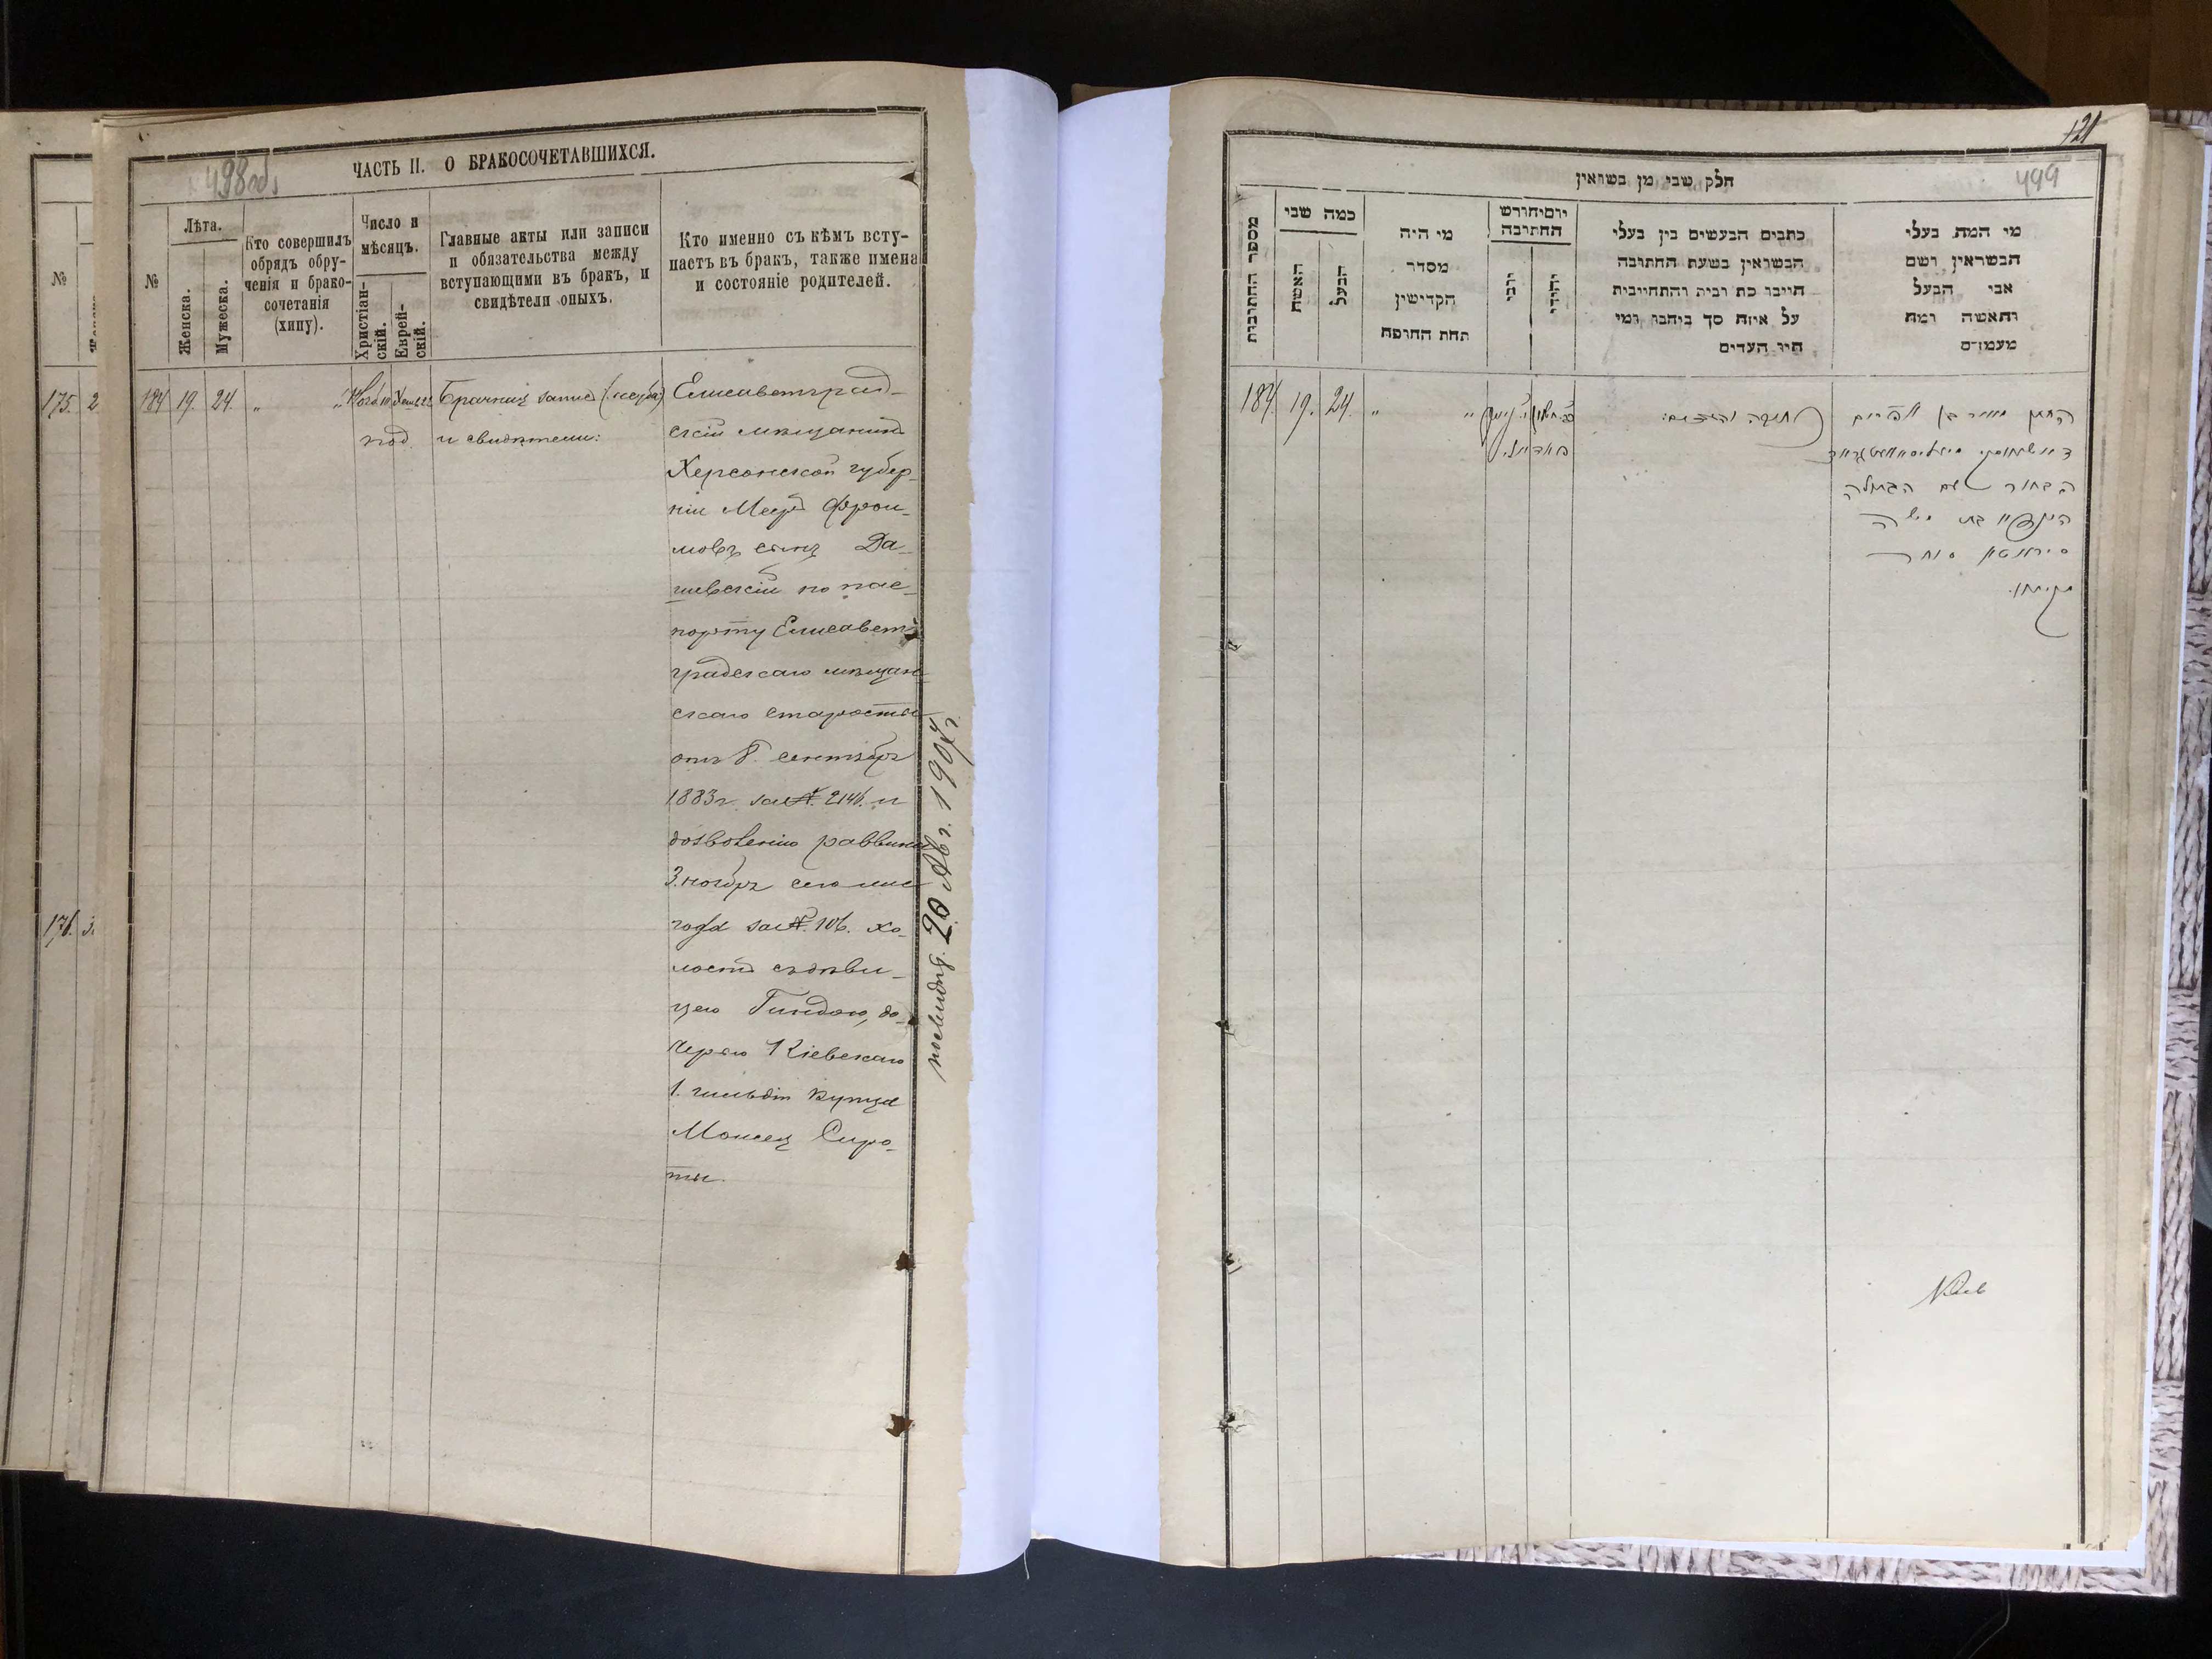 498 об
ЧАСТЬ II. О БРАКОСОЧЕТАВШИХСЯ.
№
№
Лѣта.
Женска.
Мужеска.
Кто совершилъ
обрядъ обру-
ченія и брако-
сочетанія
(хипу).
Число и
мѣсяцъ.
Христіан-
скій.
Еврей-
скій.
Главные акты или записи
и обязательства между
вступающими въ бракъ, и
свидѣтели оныхъ.
Кто именно съ кѣмъ всту-
паетъ въ бракъ, также имена
и состояніе родителей.
175. 2
176. 3.
184 19. 24. „ „
Брачная запись
и свидѣтели:
Елисаветград-
скій мѣщанинъ
Херсонской губер-
ніи Мееръ Фрои-
мовъ сынъ Да-
шевскій по пас-
порту Елисавет-
градскаго мѣщан-
скаго старосты
отъ 8. сентября
1883г. за №. 2146. и
дозволенію раввина
3. ноября сего же
года за №. 106. хо-
лостъ съ дѣви-
цею Гиндою, до-
черью Кіевскаго
1. гильдіи купца
Моисея Сиро-
ты.
20 Авг. 1904г.
121
499
חלק שני מן נשואין
מספר החתונות
כמה שני
האשה
הבעל
מי היה
מסדר
הקדישין
תחת החופה
יום וחודש
החתונה
כתבים הנעשים בין בעלי
הנשואין בשעת החתונה
חייבו כת ובית והתחייבית
על איזה סך ביחבו ומי
היו העדים
מי המה בעלי
הנשראין ושם
אבי הבעל
והאשה ומה
מעמדם
184. 19. 24. „ „
כתובה ועדים:
החתן מאיר בן אפרים
הבחור עם הבתולה
הינדא בת משה
סיראטא סוחר